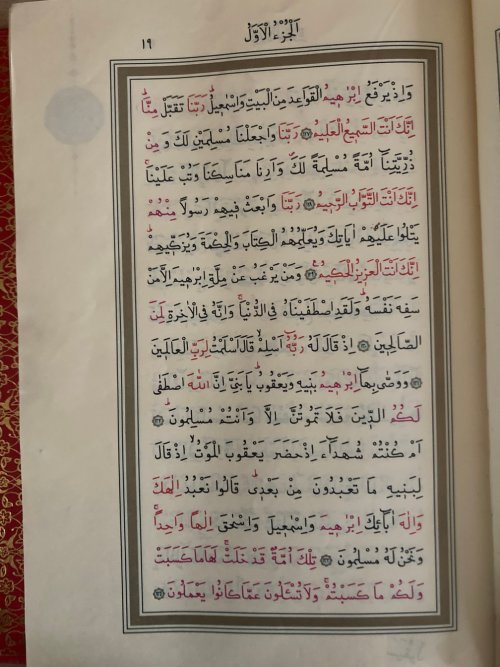 اَلْجُزْءُ الْاَوَّلُ
١٩
وَاِذْ يَرْفَعُ اِبْرٰهٖيمُ الْقَوَاعِدَ مِنَ الْبَيْتِ وَاِسْمٰعٖيلُ رَبَّنَا تَقَبَّلْ مِنَّا
اِنَّكَ اَنْتَ السَّمٖيعُ الْعَلٖيمُ ١٢٧ رَبَّنَا وَاجْعَلْنَا مُسْلِمَيْنِ لَكَ وَ مِنْ
ذُرِّيَّتِنَا اُمَّةً مُسْلِمَةً لَكَ وَاَرِنَا مَنَاسِكَنَا وَتُبْ عَلَيْنَا
اِنَّكَ اَنْتَ التَّوَّابُ الرَّحٖيمُ ١٢٨ رَبَّنَا وَابْعَثْ فٖيهِمْ رَسُولًا مِنْهُمْ
يَتْلُوا عَلَيْهِمْ اٰيَاتِكَ وَيُعَلِّمُهُمُ الْكِتَابَ وَالْحِكْمَةَ وَيُزَكّٖيهِمْ
اِنَّكَ اَنْتَ الْعَزٖيزُ الْحَكٖيمُ ١٢٩ وَمَنْ يَرْغَبُ عَنْ مِلَّةِ اِبْرٰهٖيمَ اِلَّا مَنْ
سَفِهَ نَفْسَهُ وَلَقَدِ اصْطَفَيْنَاهُ فِي الدُّنْيَا وَاِنَّهُ فِي الْاٰخِرَةِ لَمِنَ
الصَّالِحٖينَ ١٣٠ اِذْ قَالَ لَهُ رَبُّهُ اَسْلِمْ قَالَ اَسْلَمْتُ لِرَبِّ الْعَالَمٖينَ
١٣١ وَوَصّٰى بِهَا اِبْرٰهٖيمُ بَنٖيهِ وَيَعْقُوبُ يَا بَنِيَّ اِنَّ اللّٰهَ اصْطَفٰى
لَكُمُ الدّٖينَ فَلَا تَمُوتُنَّ اِلَّا وَاَنْتُمْ مُسْلِمُونَ ١٣٢
اَمْ كُنْتُمْ شُهَدَاءَ اِذْ حَضَرَ يَعْقُوبَ الْمَوْتُ اِذْ قَالَ
لِبَنٖيهِ مَا تَعْبُدُونَ مِنْ بَعْدٖي قَالُوا نَعْبُدُ اِلٰهَكَ
وَاِلٰهَ اٰبَائِكَ اِبْرٰهٖيمَ وَاِسْمٰعٖيلَ وَاِسْحٰقَ اِلٰهًا وَاحِدًا
وَنَحْنُ لَهُ مُسْلِمُونَ ١٣٣ تِلْكَ اُمَّةٌ قَدْ خَلَتْ لَهَا مَا كَسَبَتْ
وَلَكُمْ مَا كَسَبْتُمْ وَلَا تُسْـَٔلُونَ عَمَّا كَانُوا يَعْمَلُونَ ١٣٤